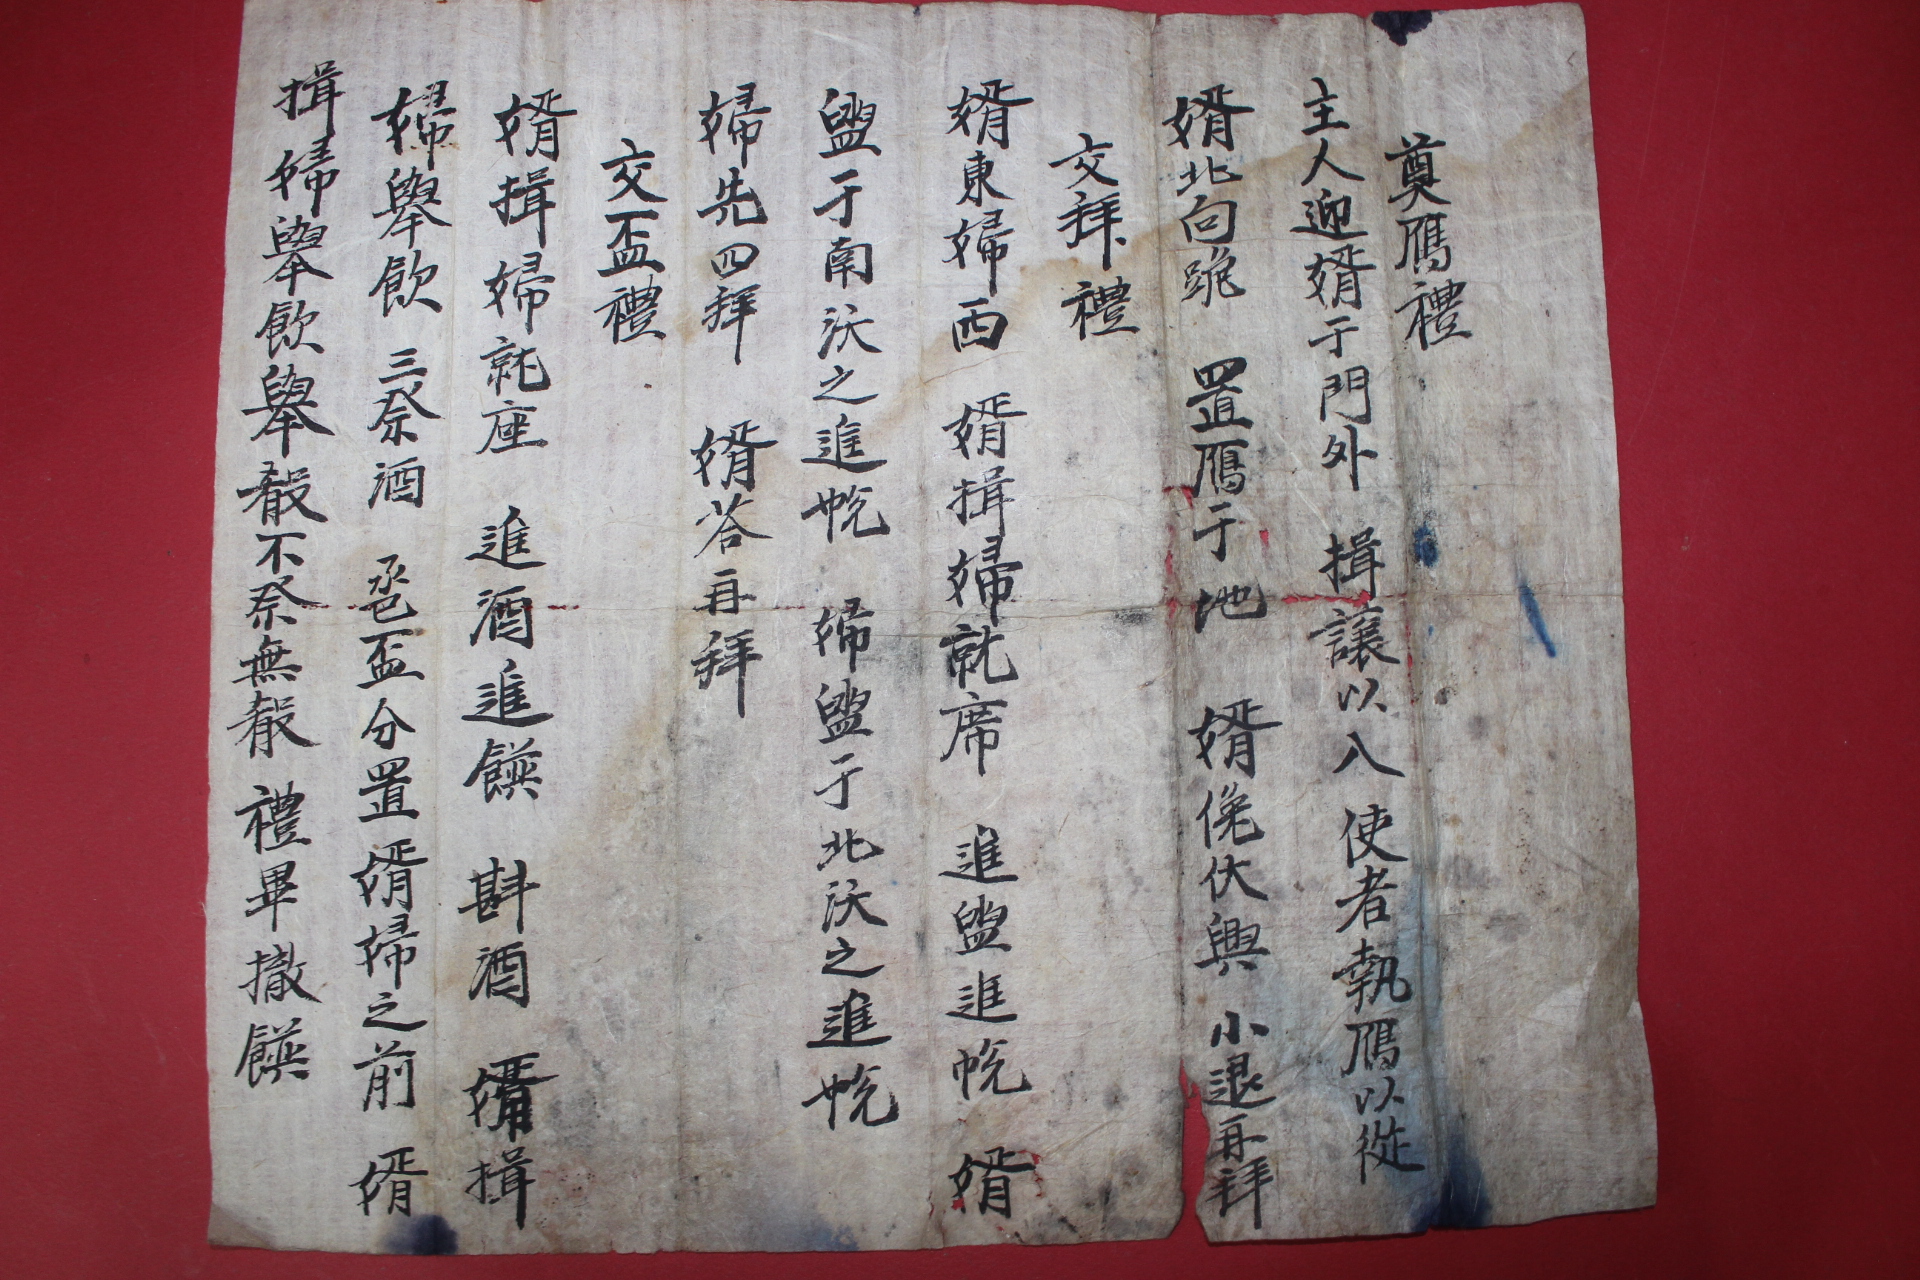 奠鴈禮
主人迎婿于門外 揖讓以入 使者執鴈以從
婿北向跪 置鴈于地 婿俛伏興 小退再拜
交拜禮
婿東婦西 婿揖婦就席 進盥進帨 婿
盥于南沃之進帨 婦盥于北沃之進帨
婦先四拜 婿荅再拜
交盃禮
婿揖婦就座 進酒進饌 斟酒 婿揖
婦舉飮 三祭酒 巹盃分置婿婦之前 婿
揖婦舉飮舉殽不祭無殽 禮畢撤饌